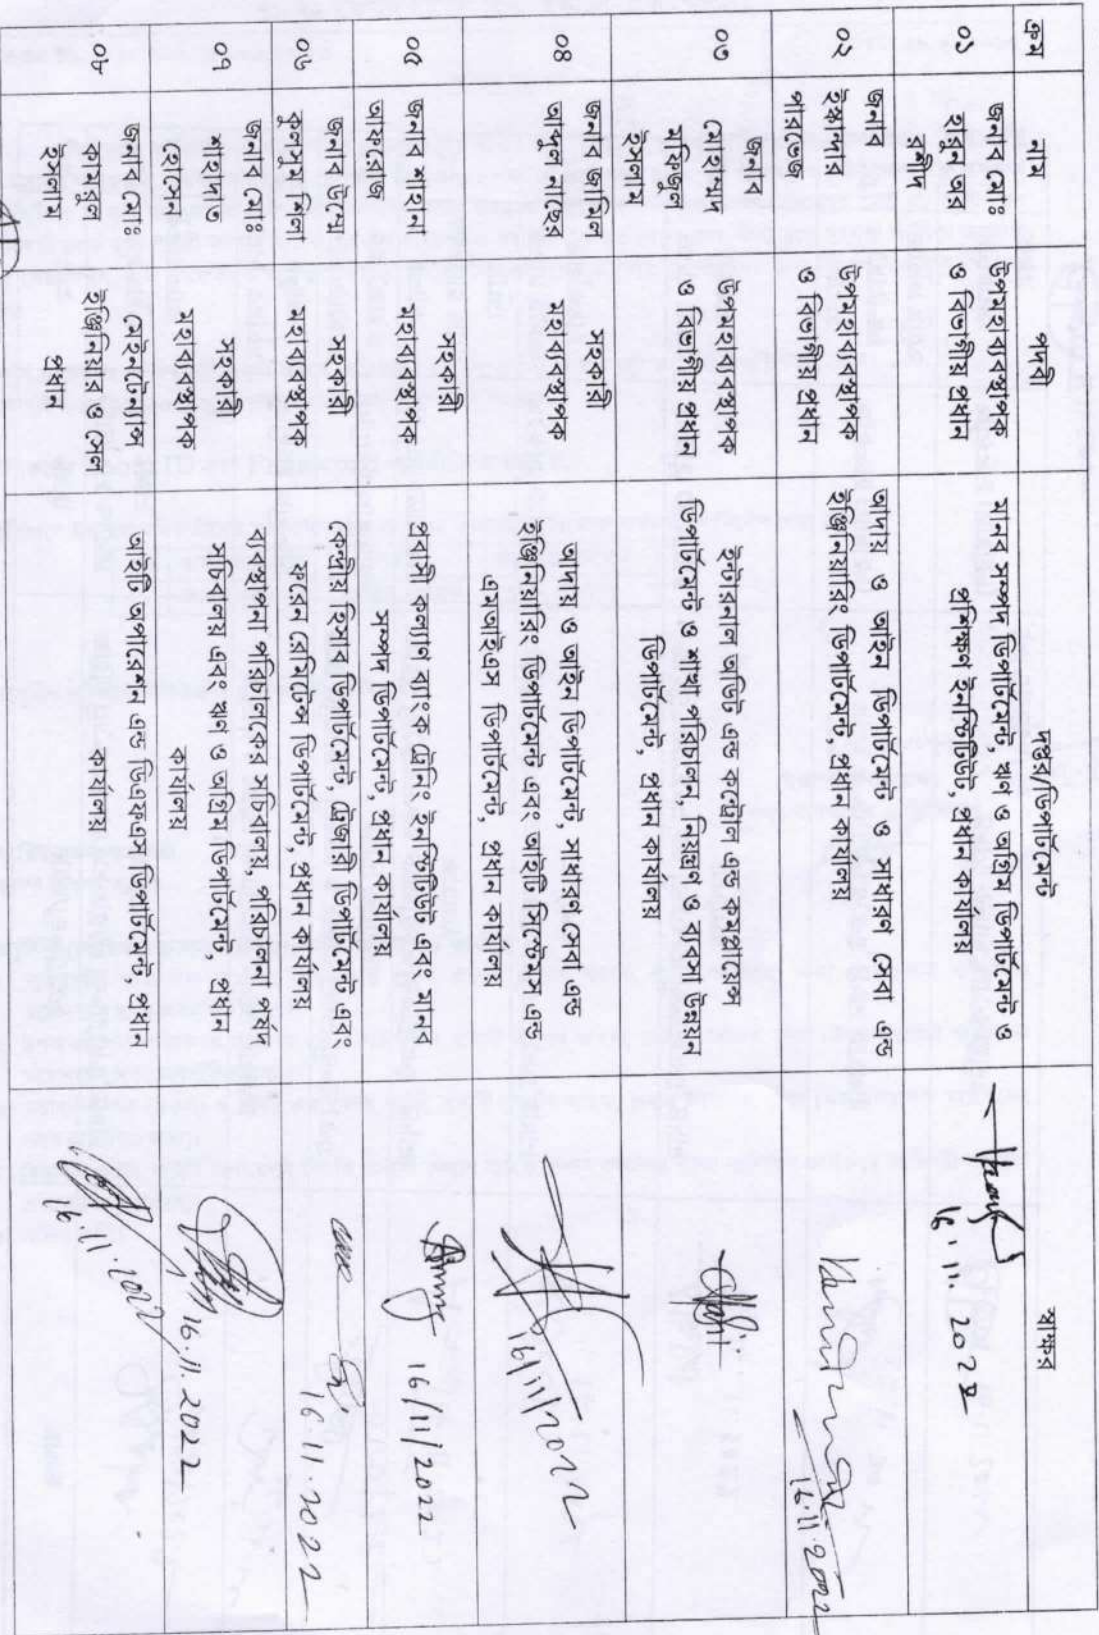 ক্রম নাম পদবী দপ্তর/ডিপার্টমেন্ট স্বাক্ষর
০১
জনাব মোঃ
হারুন অর
রশীদ
উপমহাব্যবস্থাপক
ও বিভাগীয় প্রধান
মানব সম্পদ ডিপার্টমেন্ট, ঋণ ও অগ্রিম ডিপার্টমেন্ট ও
প্রশিক্ষণ ইনস্টিটিউট, প্রধান কার্যালয়
16.11.2022
০২
জনাব
ইস্কান্দার
পারভেজ
উপমহাব্যবস্থাপক
ও বিভাগীয় প্রধান
আদায় ও আইন ডিপার্টমেন্ট ও সাধারণ সেবা এন্ড
ইঞ্জিনিয়ারিং ডিপার্টমেন্ট, প্রধান কার্যালয়
16.11.2022
০৩
জনাব
মোহাম্মদ
মফিজুল
ইসলাম
উপমহাব্যবস্থাপক
ও বিভাগীয় প্রধান
ইন্টারনাল অডিট এন্ড কন্ট্রোল এন্ড কমপ্লায়েন্স
ডিপার্টমেন্ট ও শাখা পরিচালন, নিয়ন্ত্রণ ও ব্যবসা উন্নয়ন
ডিপার্টমেন্ট, প্রধান কার্যালয়
০৪
জনাব জামিল
আব্দুল নাছের
সহকারী
মহাব্যবস্থাপক
আদায় ও আইন ডিপার্টমেন্ট, সাধারণ সেবা এন্ড
ইঞ্জিনিয়ারিং ডিপার্টমেন্ট এবং আইটি সিস্টেমস এন্ড
এমআইএস ডিপার্টমেন্ট, প্রধান কার্যালয়
16/11/2022
০৫
জনাব শাহানা
আফরোজ
সহকারী
মহাব্যবস্থাপক
প্রবাসী কল্যাণ ব্যাংক ট্রেনিং ইনস্টিটিউট এবং মানব
সম্পদ ডিপার্টমেন্ট, প্রধান কার্যালয়
16/11/2022
০৬
জনাব উম্মে
কুলসুম শিলা
সহকারী
মহাব্যবস্থাপক
কেন্দ্রীয় হিসাব ডিপার্টমেন্ট, ট্রেজারী ডিপার্টমেন্ট এবং
ফরেন রেমিটেন্স ডিপার্টমেন্ট, প্রধান কার্যালয়
16.11.2022
০৭
জনাব মোঃ
শাহাদাত
হোসেন
সহকারী
মহাব্যবস্থাপক
ব্যবস্থাপনা পরিচালকের সচিবালয়, পরিচালনা পর্ষদ
সচিবালয় এবং ঋণ ও অগ্রিম ডিপার্টমেন্ট, প্রধান
কার্যালয়
16.11.2022
০৮
জনাব মোঃ
কামরুল
ইসলাম
মেইনটেন্যান্স
ইঞ্জিনিয়ার ও সেল
প্রধান
আইটি অপারেশন এন্ড ডিএফএস ডিপার্টমেন্ট, প্রধান
কার্যালয়
16.11.2022